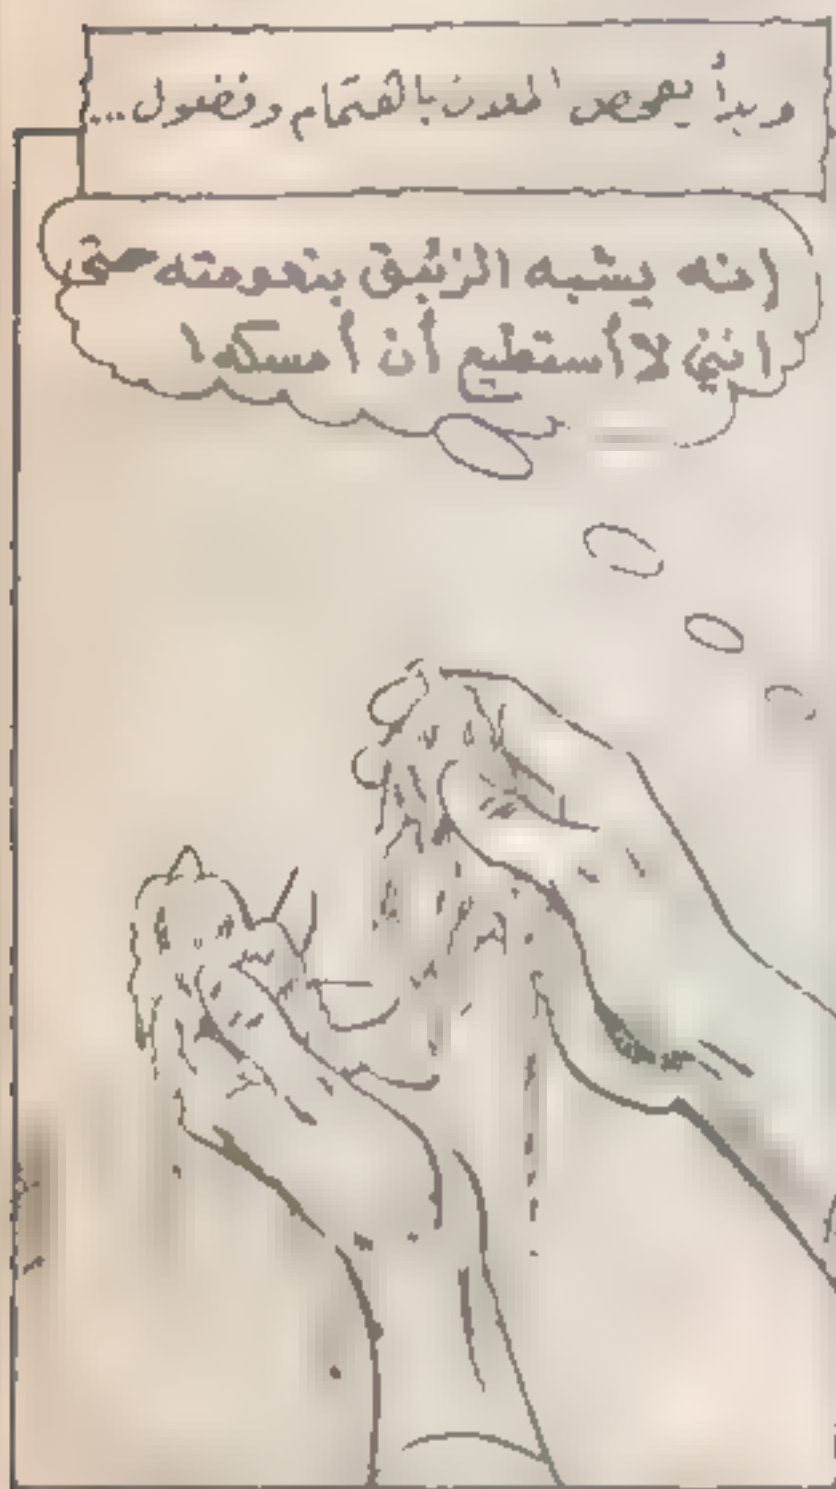 وبدأ يفحص المعدن باهتمام وفضول...
إنه يشبه الزئبق بنعومته حتى
انني لا أستطيع أن أمسكه!